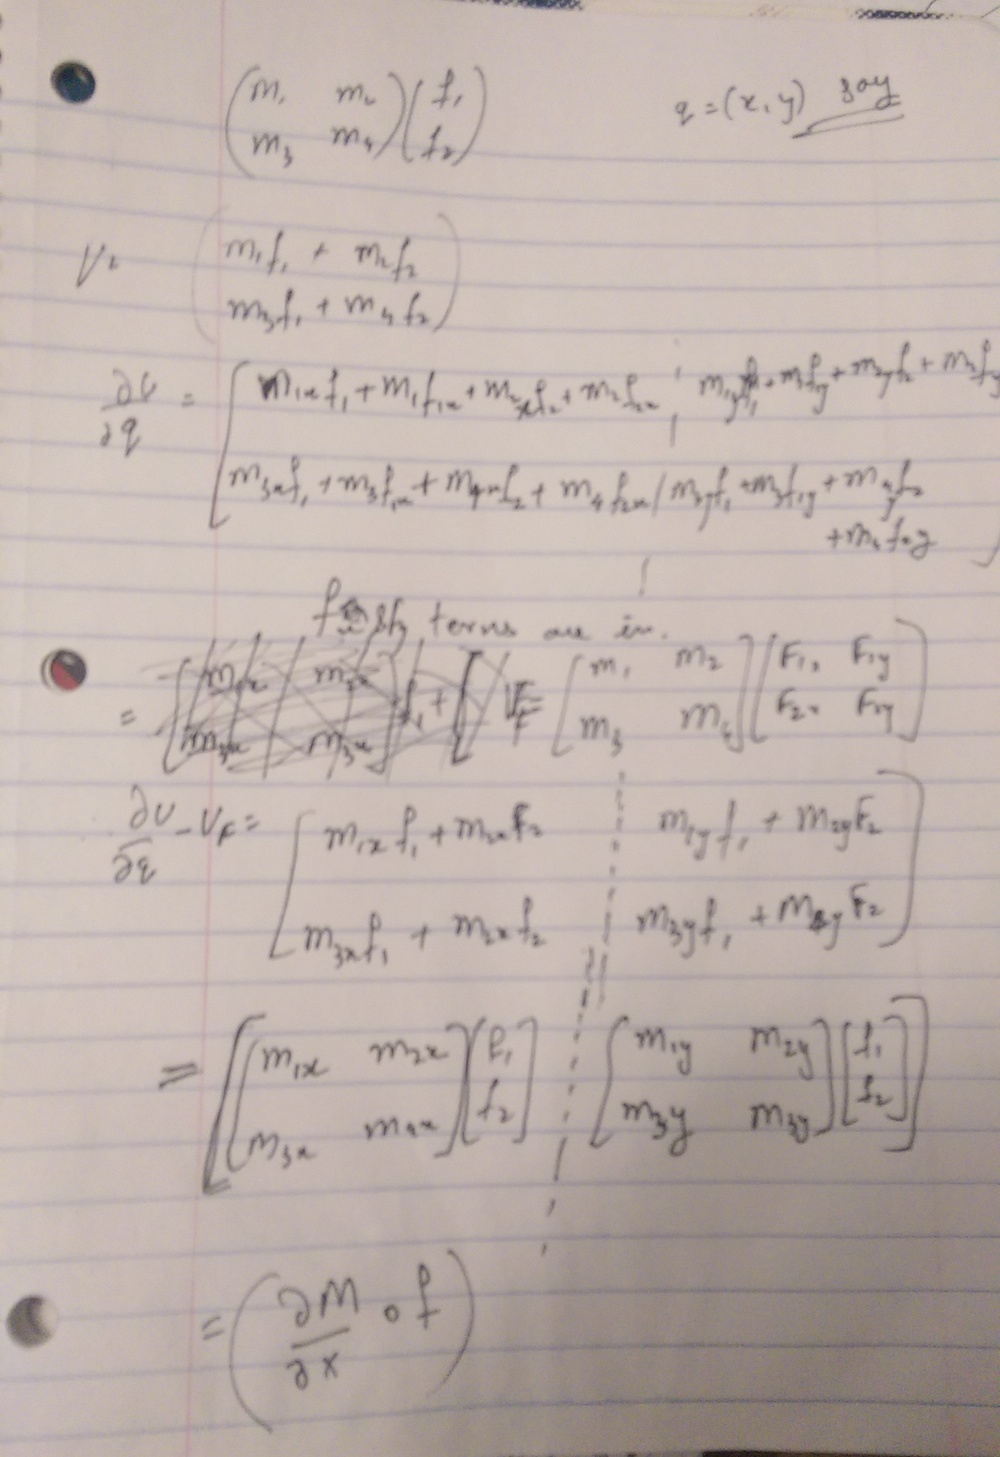 (m₁ m₂ ; m₃ m₄)(f₁ ; f₂) q = (x, y) say
V = (m₁f₁ + m₂f₂ ; m₃f₁ + m₄f₂)
∂V/∂q = [m₁ₓf₁ + m₁f₁ₓ + m₂ₓf₂ + m₂f₂ₓ ¦ m₁yf₁ + m₁f₁y + m₂yf₂ + m₂f₂y
m₃ₓf₁ + m₃f₁ₓ + m₄ₓf₂ + m₄f₂ₓ / m₃yf₁ + m₃f₁y + m₄yf₂
+ m₄f₂y]
fₓ & fy terms are in.
= V_F = [m₁ m₂ ; m₃ m₄][F₁ₓ F₁y ; F₂ₓ F₂y]
∂V/∂q - V_F = [m₁ₓf₁ + m₂ₓF₂ ¦ m₁yf₁ + m₂yF₂
m₃ₓf₁ + m₂ₓf₂ ¦ m₃yf₁ + m₄yF₂]
= [[m₁ₓ m₂ₓ ; m₃ₓ m₄ₓ][f₁ ; f₂] ¦ [m₁y m₂y ; m₃y m₃y][f₁ ; f₂]]
= (∂M/∂x ∘ f)